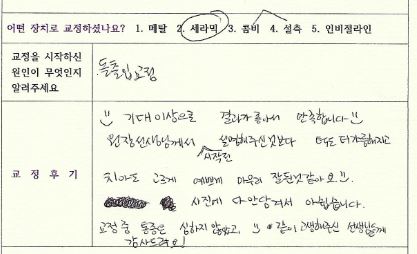 어떤 장치로 교정하셨나요? 1. 메탈 2. 세라믹 3. 콤비 4. 설측 5. 인비절라인
교정을 시작하신
원인이 무엇인지
알려주세요
돌출입교정
교정후기
기대이상으로 결과가 좋아서 만족합니다
원장선생님께서 설명해주신것보다 더 가름해지고
시작전
치아도 고르게 예쁘게 마무리 잘된것같아요
사진에 다 안담겨서 아쉽습니다.
교정 중 통증은 심하지 않았고, 같이 고생해주신 선생님들께
감사드려요!